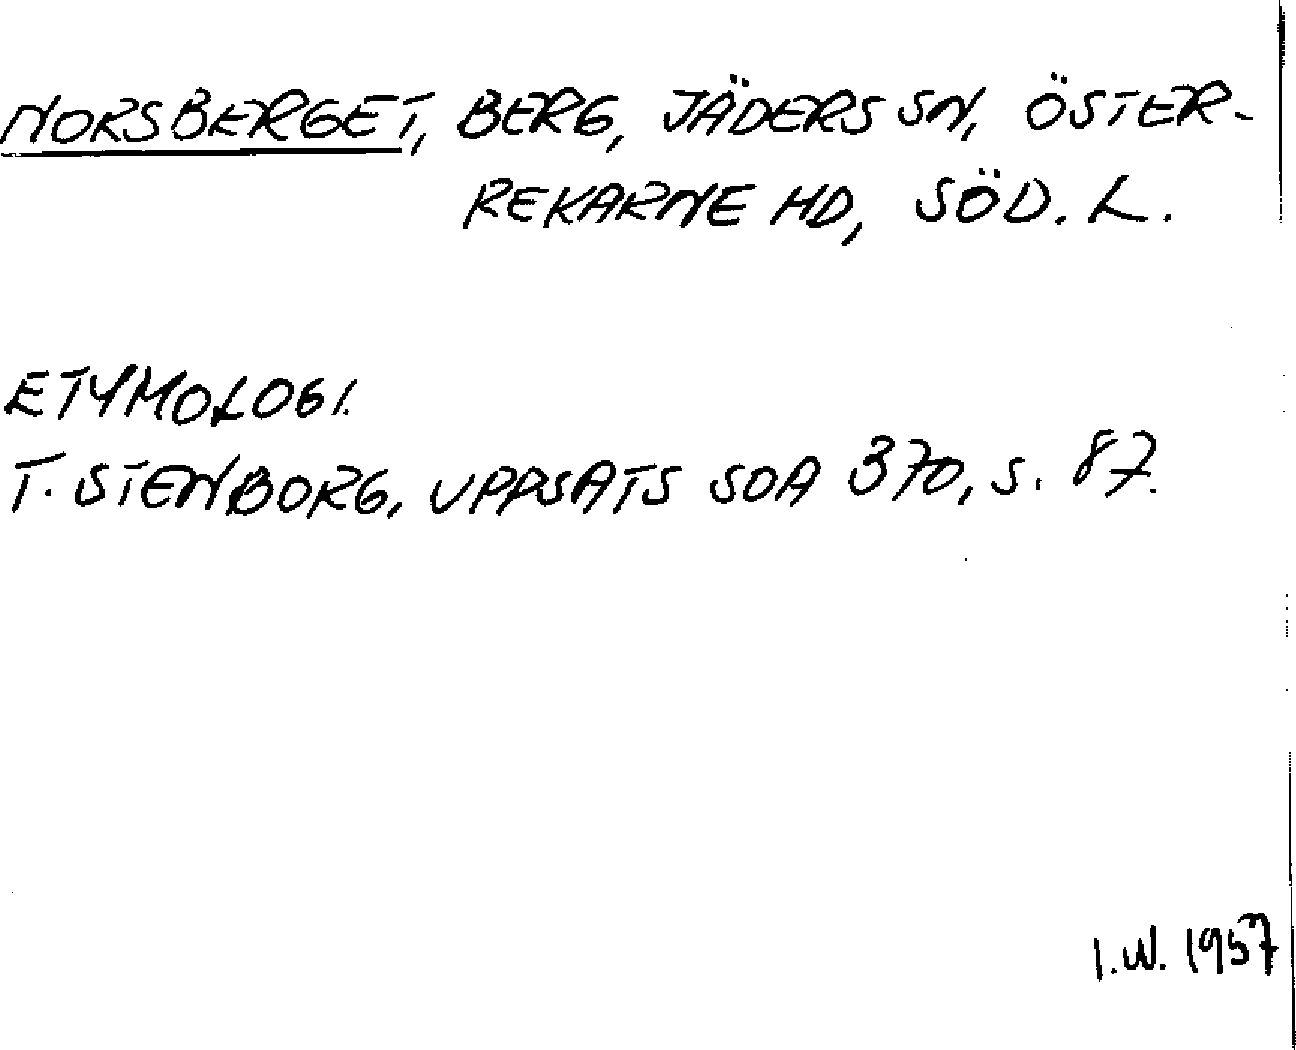 NORSBERGET, BERG, JÄDERS SN, ÖSTER-
REKARNE HD, SÖD. L.
ETYMOLOGI.
T. STENBORG, UPPSATS SOA 370, S. 87.
I.W. 1957